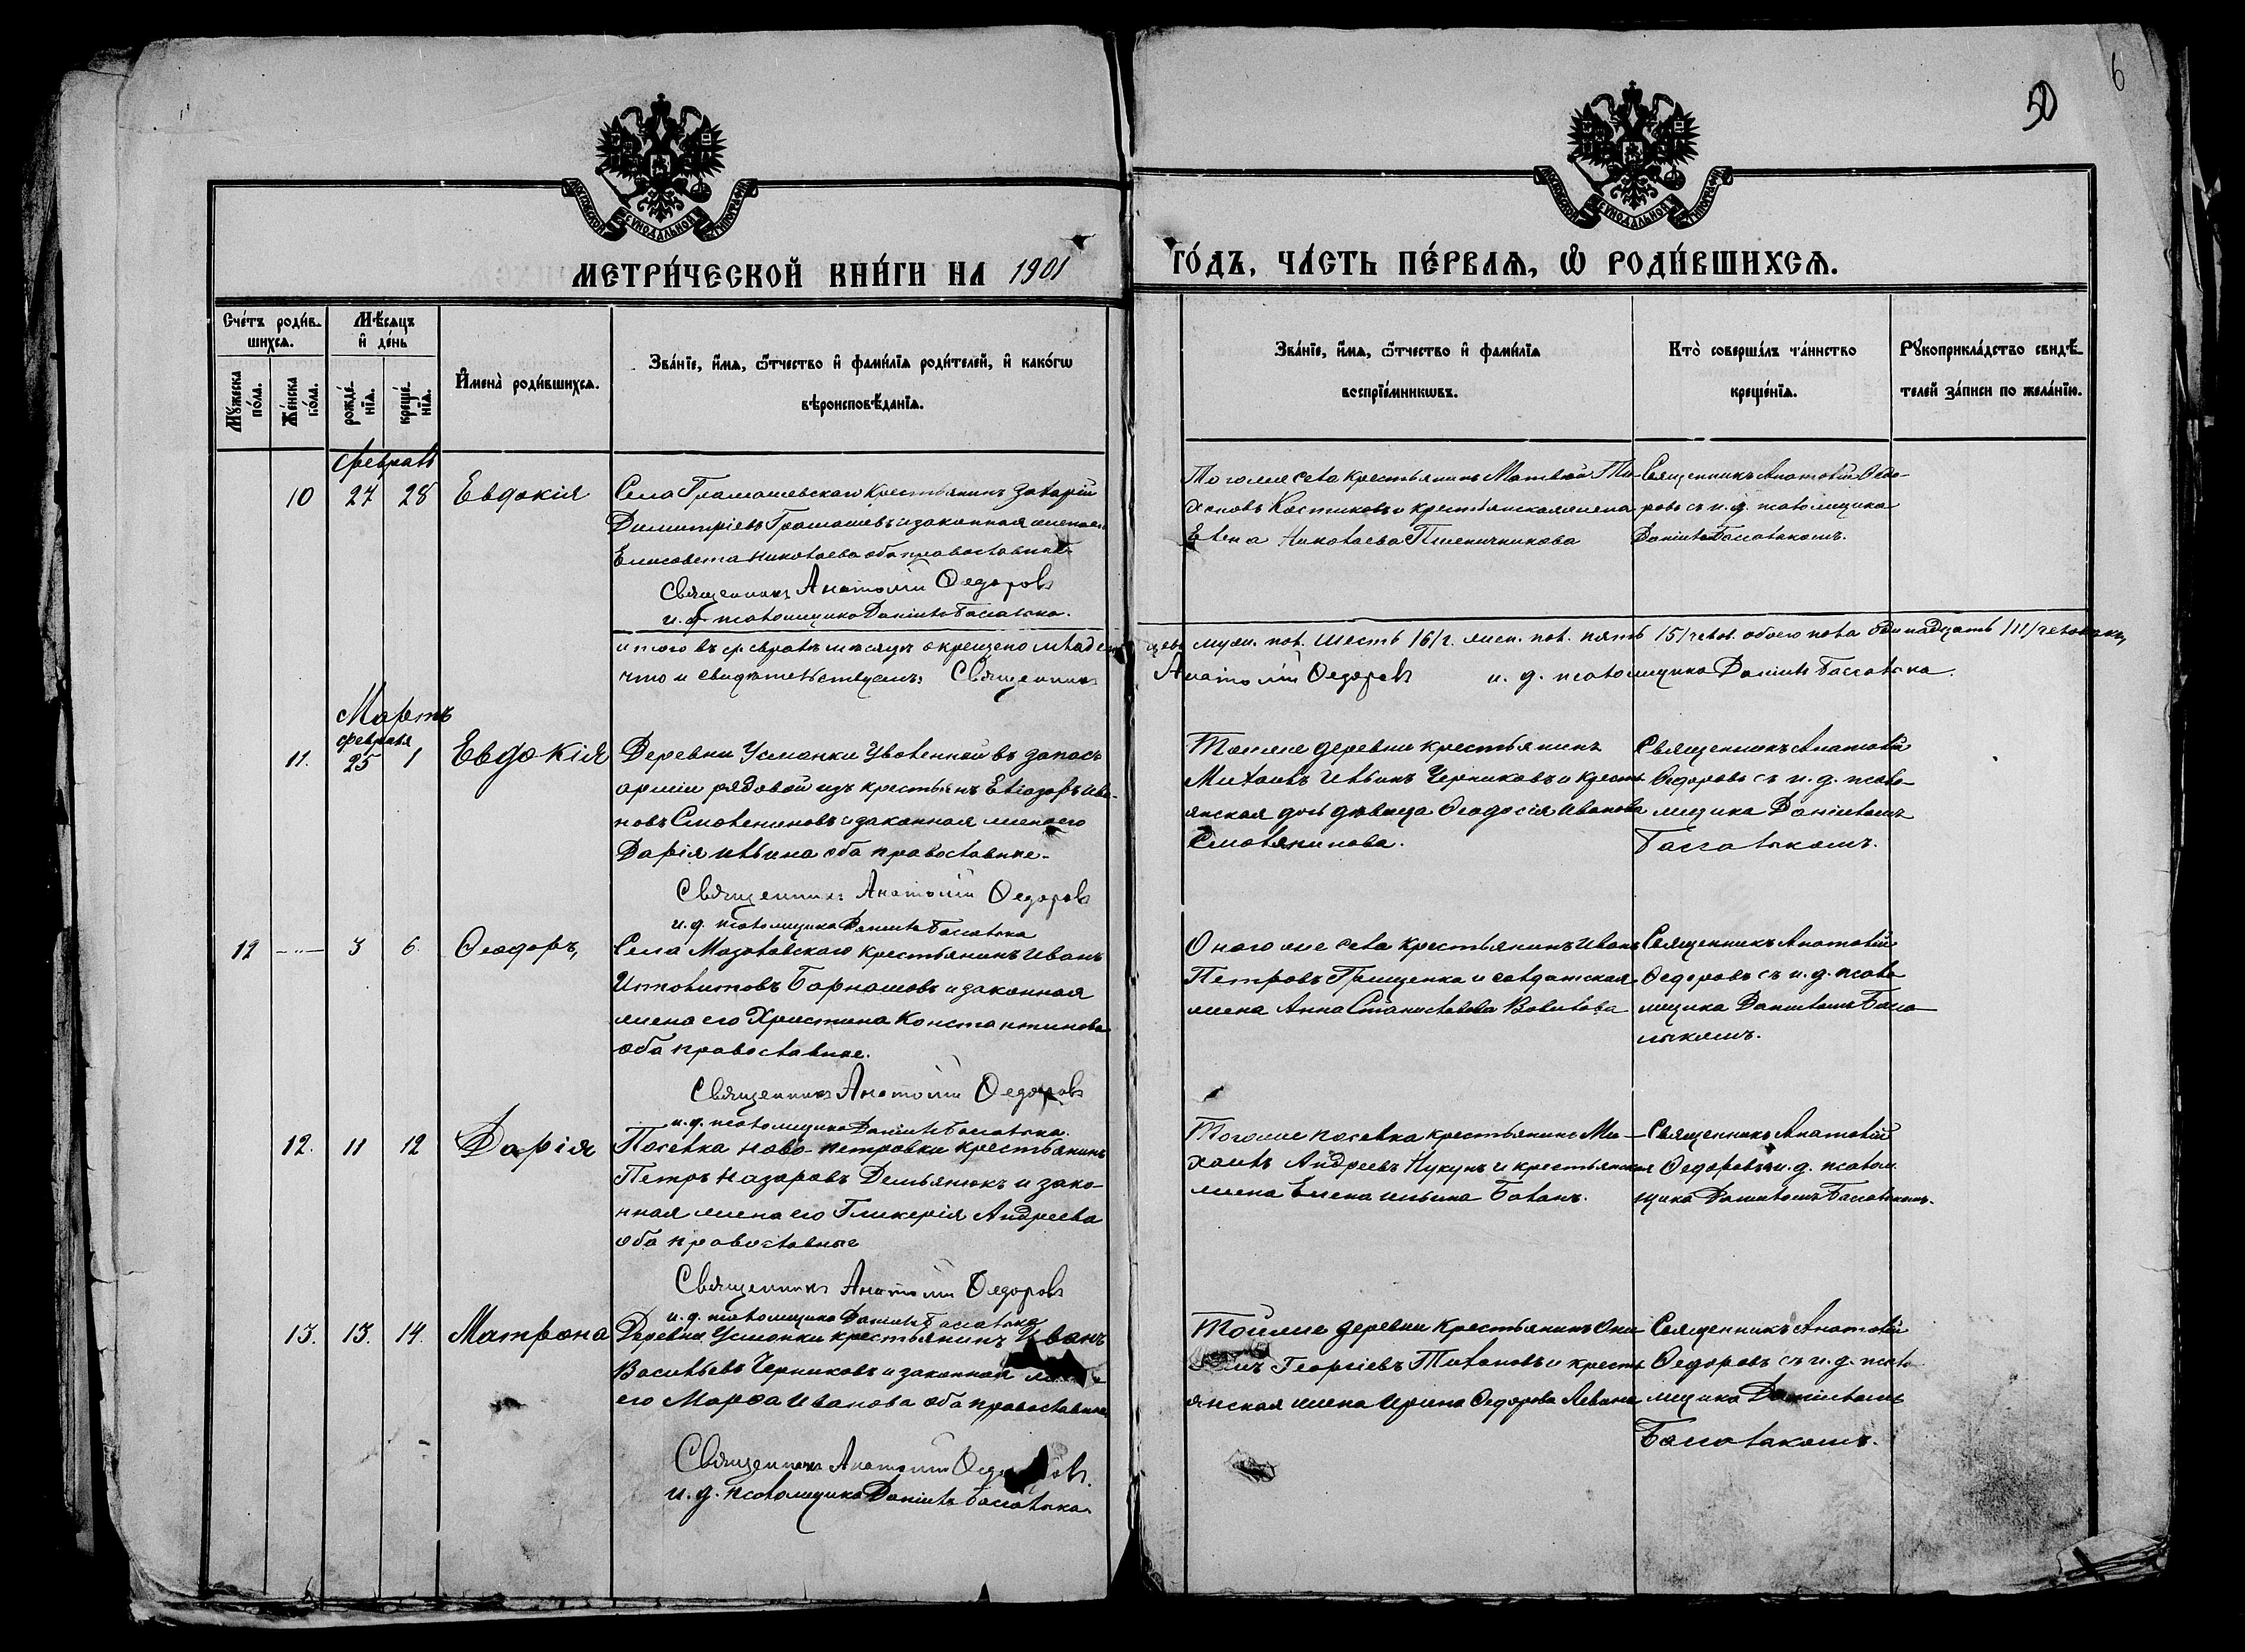 50
6
МОСКОВСКОЙ СѴНОДАЛЬНОЙ ТИПОГРАФІИ
МОСКОВСКОЙ СѴНОДАЛЬНОЙ ТИПОГРАФІИ
МЕТРИ́ЧЕСКОЙ КНИ́ГИ НА 1901
ГО́ДЪ, ЧА́СТЬ ПЕ́РВАѦ, Ѡ РОДИ́ВШИХСѦ.
Сче́тъ роди́в-
шихсѧ.
Мѣ́сѧцъ
и҆ де́нь
Мꙋ́жеска
по́ла.
Же́нска
по́ла.
рожде́-
нїѧ.
креще́-
нїѧ.
И҆мена̀ роди́вшихсѧ.
Зва́нїе, и҆́мѧ, ѻ҆́тчество и҆ фами́лїѧ роди́телей, и҆ како́гѡ
вѣроисповѣ́данїѧ.
Зва́нїе, и҆́мѧ, ѻ҆́тчество и҆ фами́лїѧ
воспрїе́мникѡвъ.
Кто̀ соверша́лъ та́инство
креще́нїѧ.
Рꙋкоприкла́дство свидѣ́-
телей за́писи по жела́нїю.
февраль
10 27 28 Евдокія
Села Грамашевскаго крестьянинъ Захарій
Димитріевъ Грамашевъ и законная жена его
Елисавета Николаева оба православные
Священникъ Анатолій Ѳедоровъ
и. д. псаломщика Даніилъ Бассалыка.
Тогоже села крестьянинъ Матвѣй Ти-
хоновъ Костиковъ и крестьянская жена
Елена Николаева Пшеничникова
Священникъ Анатолій Ѳедо-
ровъ съ и. д. псаломщика
Даніиломъ Бассалыкомъ.
итого въ февралѣ мѣсяцѣ окрещено младен
цевъ муж. пол. шесть /6/ ч. жен. пол. пять /5/ челов. обоего пола одинадцать /11/ человѣкъ,
что и свидѣтельствуемъ: Священникъ
Анатолій Ѳедоровъ и. д. псаломщика Даніилъ Бассалыка.
Мартъ
февраля
11. 25 1 Евдокія
Деревни Усманки уволенный въ запасъ
арміи рядовой изъ крестьянъ Еліазаръ Ива-
новъ Смоляниновъ и законная жена его
Дарія Ильина оба православные.
Священникъ Анатолій Ѳедоровъ
и. д. псаломщика Даніилъ Бассалыка
Тойже деревни крестьянинъ
Михаилъ Ильинъ Черниковъ и кресть
янская дочь дѣвица Ѳеодосія Иванова
Смолянинова.
Священникъ Анатолій
Ѳедоровъ съ и. д. псало-
мщика Даніиломъ
Бассалыкомъ.
12 —"— 3 6. Ѳеодоръ,
Села Мазаловскаго крестьянинъ Иванъ
Ипполитовъ Барнашовъ и законная
жена его Христина Константинова
оба православные.
Священникъ Анатолій Ѳедоровъ
и. д. псаломщика Даніилъ Бассалыка.
Оного же села крестьянинъ Иванъ
Петровъ Грищенка и солдатская
жена Анна Станиславова
Священникъ Анатолій
Ѳедоровъ съ и. д. псало
мщика Даніиломъ Басса-
лыкомъ.
12. 11 12 Дарія
Поселка Ново-Петровки крестьянинъ
Петръ Назаровъ Демьянюкъ и зако-
нная жена его Гликерія Андреева
оба православные
Священникъ Анатолій Ѳедоровъ
и. д. псаломщика Даніилъ Бассалыка
Тогоже поселка крестьянинъ Ми-
хаилъ Андреевъ и крестьянская
жена Елена Ильина Балан.
Священникъ Анатолій
Ѳедоровъ и. д. псалом
щика Даніиломъ Бассалыкомъ.
13. 13. 14. Матрона
Деревни Усманки крестьянинъ Иванъ
Васильевъ Черниковъ и законная жена
его Марѳа Иванова оба православные
Священникъ Анатолій Ѳедоровъ.
и. д. псаломщика Даніилъ Бассалыка.
Тойже деревни крестьянинъ
Георгіевъ Тихоновъ и кресть
янская жена Ирина Ѳедорова
Священникъ Анатолій
Ѳедоровъ съ и. д. псало
мщика Даніиломъ
Бассалыкомъ.